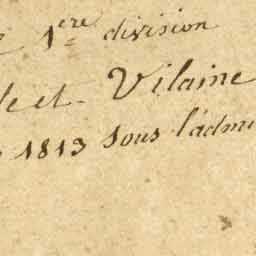 1ere division
et Vilaine
1813 sous l'admi